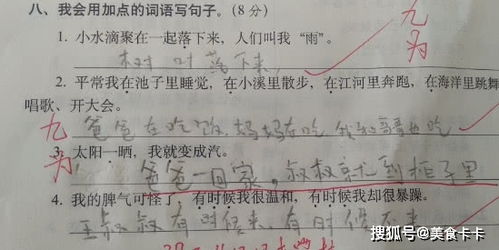 八、我会用加点的词语写句子。(8分)
1. 小水滴聚在一起落下来，人们叫我“雨”。
树叶落下来
2. 平常我在池子里睡觉，在小溪里散步，在江河里奔跑，在海洋里跳舞、
唱歌、开大会。
爸爸在吃饭，妈妈在吃 我和哥哥也吃
3. 太阳一晒，我就变成汽。
爸爸一回家，叔叔就到柜子里
4. 我的脾气可怪了，有时候我很温和，有时候我却很暴躁。
王叔叔有时候来，有时候不来
搜狐号@美食卡卡